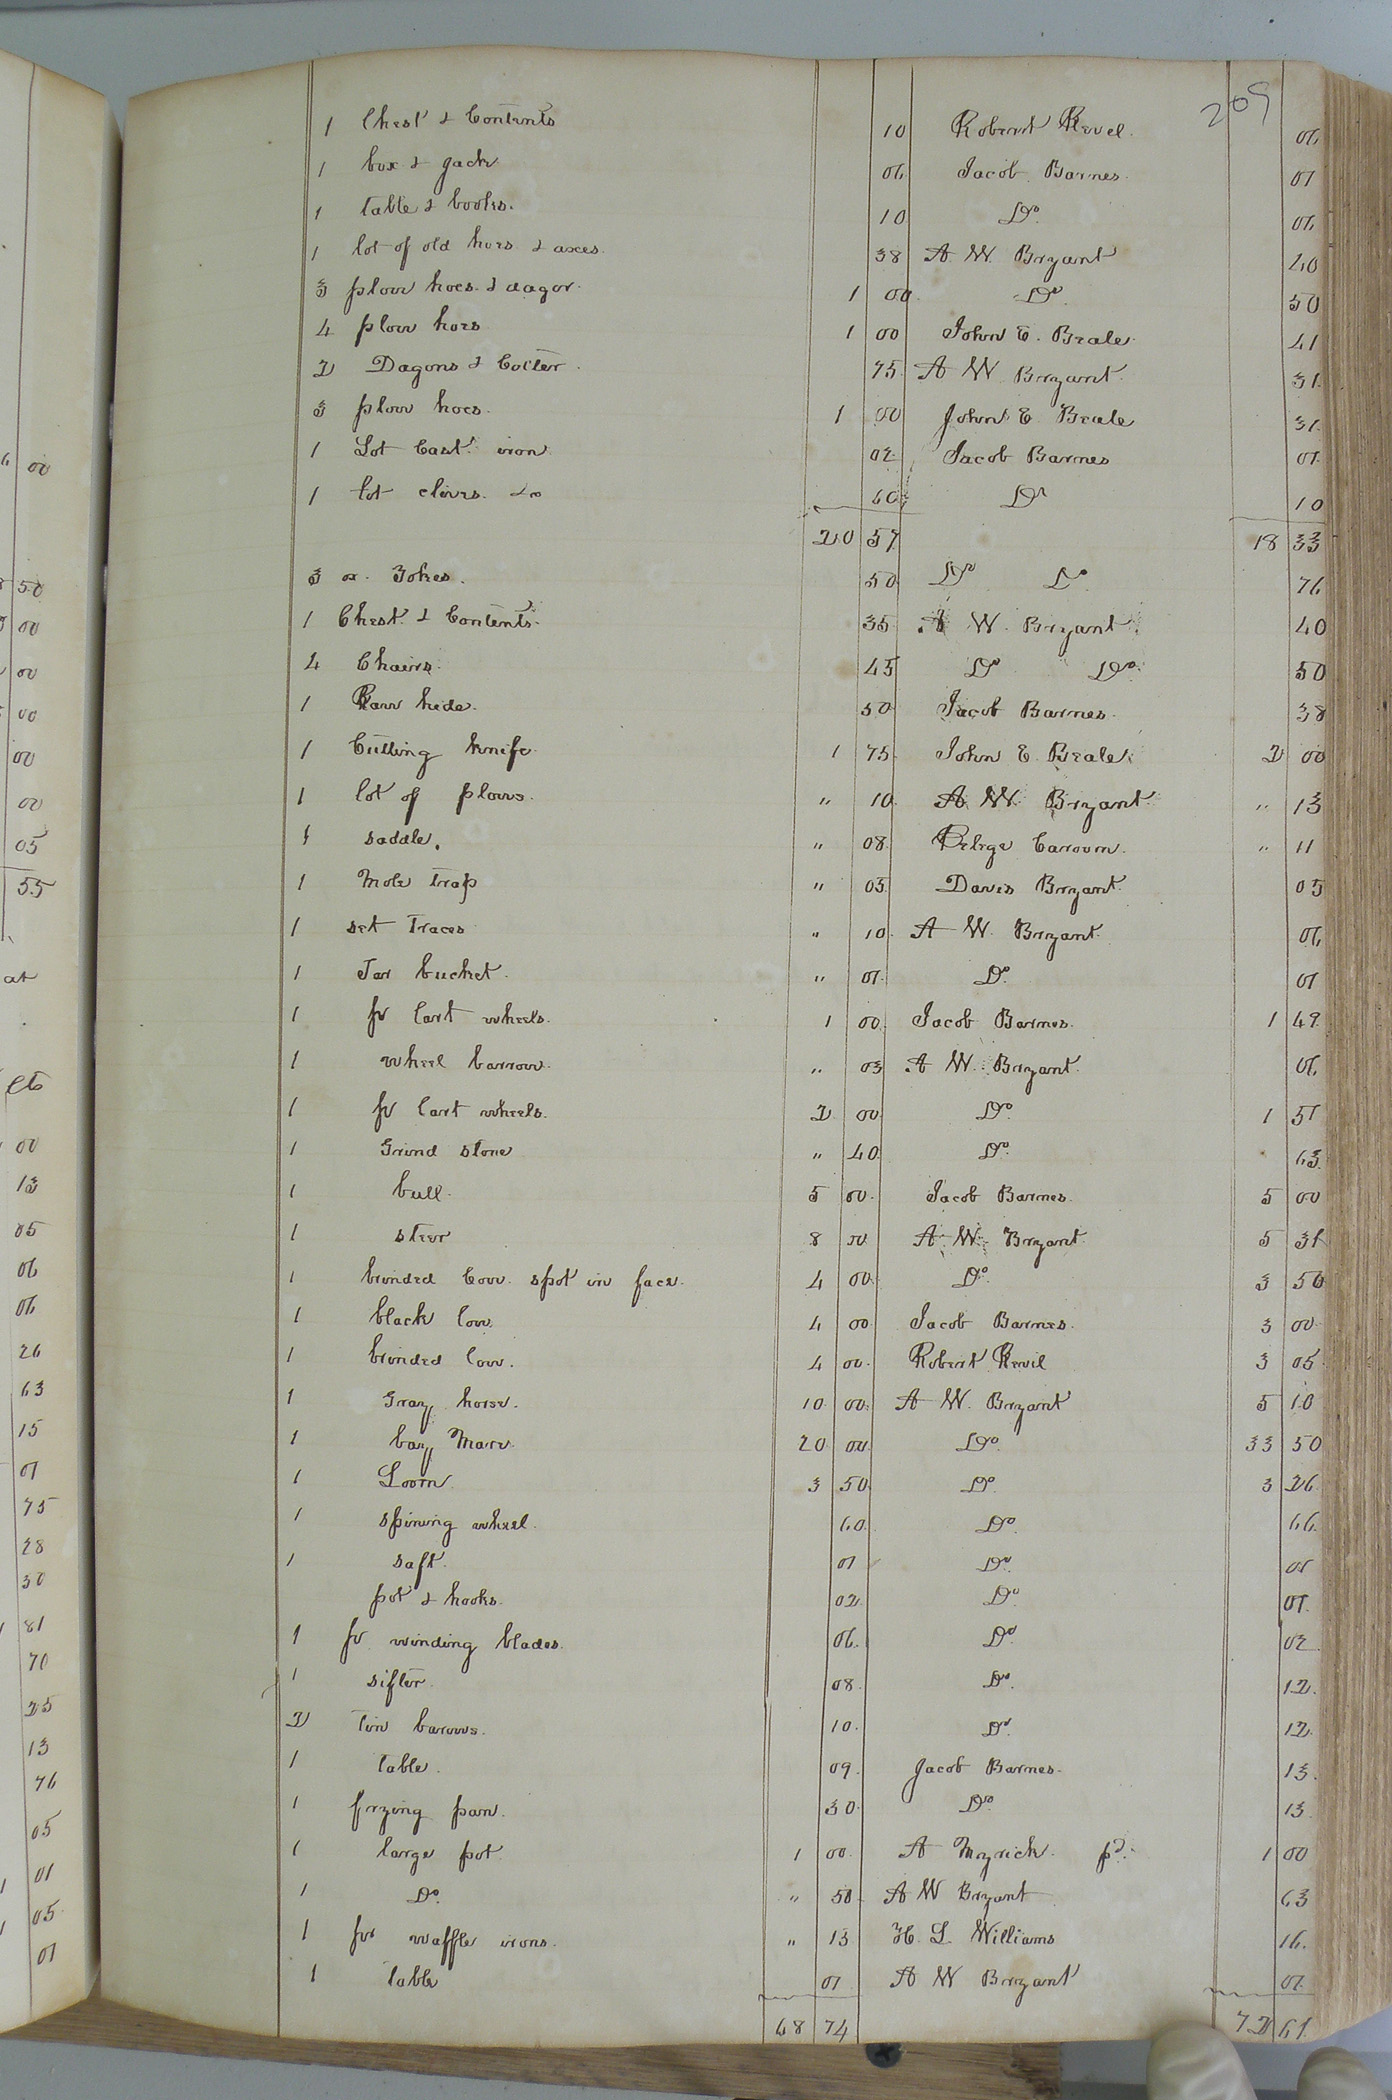 209
1 Chest & Contents 10 Robert Revel 06
1 box & jack 06 Jacob Barnes 01
1 table & books. 10 Do 06
1 lot of old hoes & axes. 38 A. W. Bryant 40
3 plow hoes & dagor. 1 00 Do 50
4 plow hoes 1 00 John E. Beale 41
2 Dagons & Colter. 75 A W Bryant. 31
3 plow hoes. 1 00 John E Beale 31
1 Lot Cast iron 02 Jacob Barnes 01
1 lot 60 Do 10
20 57 18 33
3 ox Yokes. 50 Do Do 76
1 Chest & Contents. 35 A W Bryant. 40
4 Chairs. 45 Do Do 50
1 Raw hide. 50 Jacob Barnes. 38
1 Cutting knife 1 75 John E. Beale 2 00
1 lot of plows. " 10 A W Bryant " 13
1 saddle. " 08 " 11
1 Mole trap " 05 Davis Bryant. 05
1 set Traces " 10 A W. Bryant. 06
1 Tar bucket. " 01 Do 01
1 pr Cart wheels. 1 00 Jacob Barnes. 1 49
1 wheel barrow. " 03 A W. Bryant. 06
1 pr Cart wheels. 2 00 Do 1 51
1 Grind stone " 40 Do 63
1 bull. 5 00 Jacob Barnes. 5 00
1 steer 8 00 A. W. Bryant 5 31
1 brinded Cow. spot in face. 4 00 Do 3 50
1 black Cow. 4 00 Jacob Barnes. 3 00
1 brinded Cow. 4 00 Robert Revil 3 05
1 Gray horse. 10 00 A W. Bryant 5 10
1 bay Mare 20 00 Do 33 50
1 Loom 3 50 Do 3 26
1 spining wheel. 60 Do 66
1 saft. 01 Do 01
pot & hooks. 02 Do 01
1 pr winding blades. 06 Do 02
1 sifter. 08 Do 12
2 Tin barows. 10 Do 12
1 table. 09 Jacob Barnes. 13
1 frying pan. 30 Do 13
1 large pot 1 00 A Myrick. pd. 1 00
1 Do " 50 A W Bryant 63
1 pr waffle irons. " 13 H. L. Williams 16
1 table 01 A W Bryant 01
68 74 72 61
00
50
00
00
00
00
00
05
55
at
cts
00
13
05
06
06
26
63
15
01
75
28
30
81
70
25
13
76
05
01
05
01